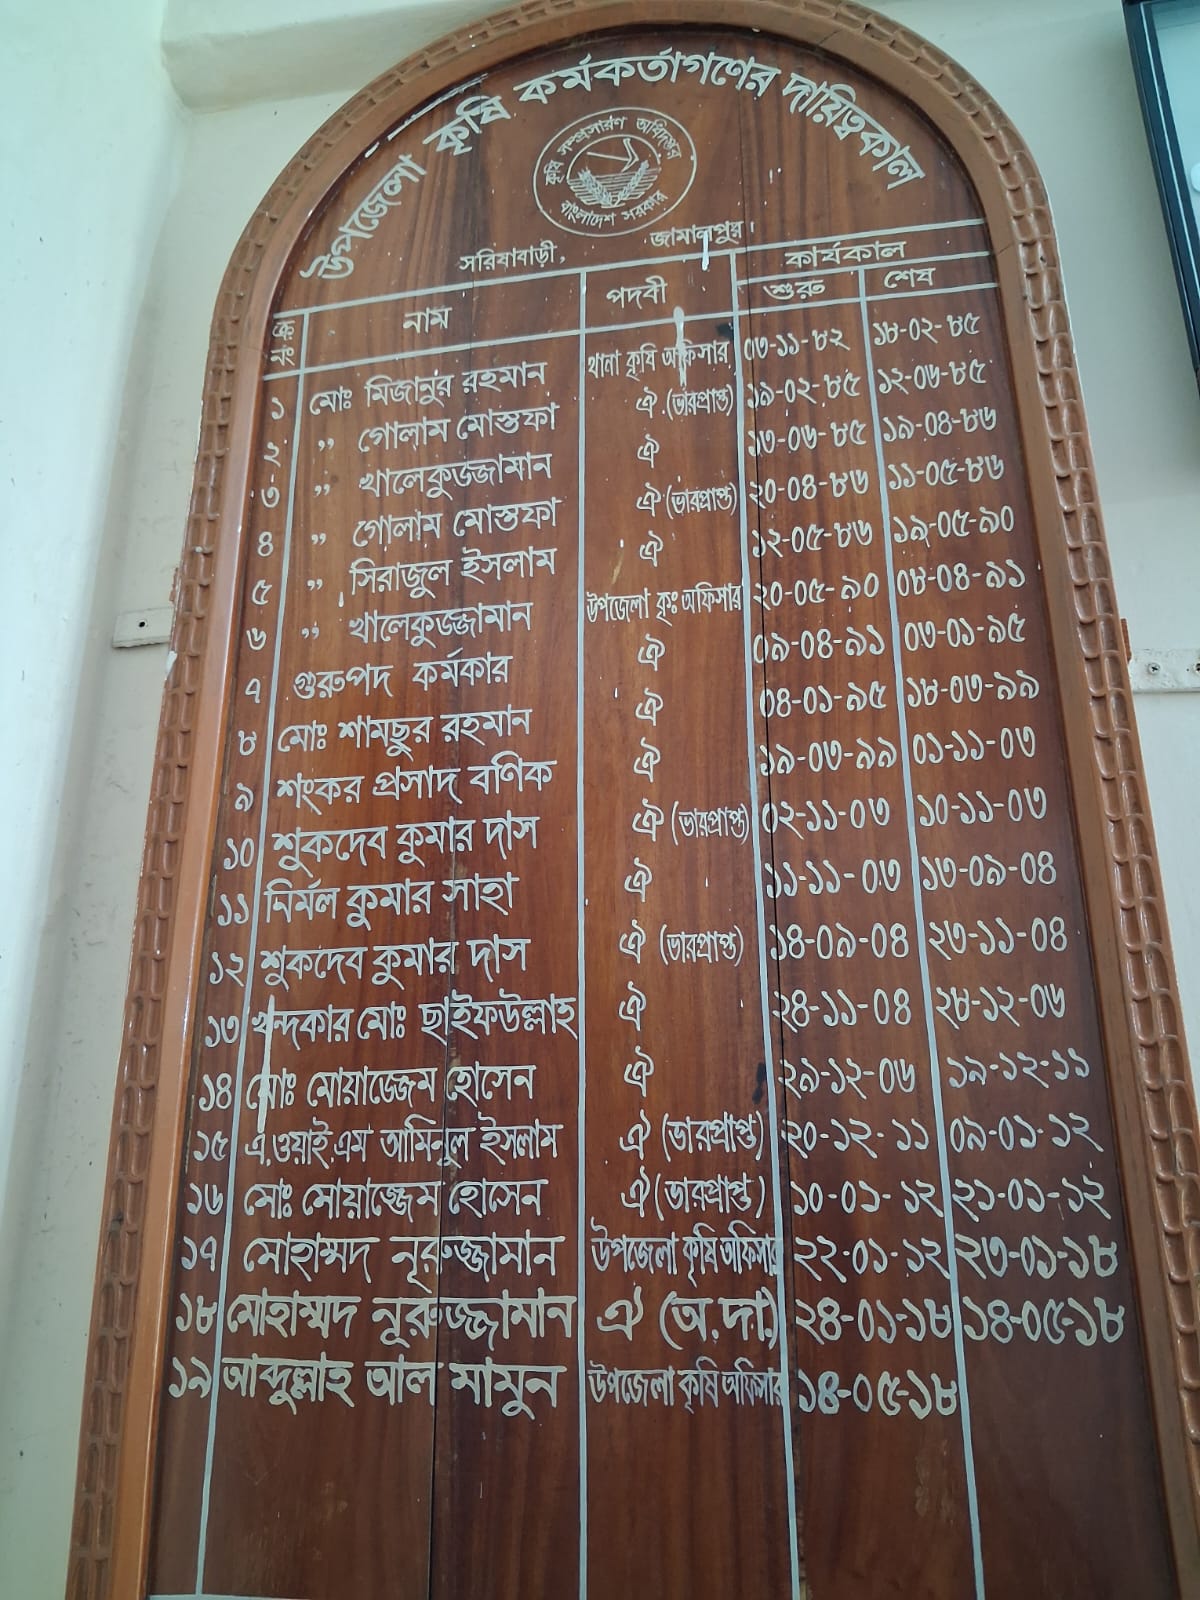 উপজেলা কৃষি কর্মকর্তাগণের দায়িত্বকাল
কৃষি সম্প্রসারণ অধিদপ্তর
বাংলাদেশ সরকার
সরিষাবাড়ী, জামালপুর।
ক্রঃ নং নাম পদবী কার্যকাল
শুরু শেষ
১ মোঃ মিজানুর রহমান থানা কৃষি অফিসার ০৩-১১-৮২ ১৮-০২-৮৫
২ ,, গোলাম মোস্তফা ঐ (ভারপ্রাপ্ত) ১৯-০২-৮৫ ১২-০৬-৮৫
৩ ,, খালেকুজ্জামান ঐ ১৩-০৬-৮৫ ১৯-০৪-৮৬
৪ ,, গোলাম মোস্তফা ঐ (ভারপ্রাপ্ত) ২০-০৪-৮৬ ১১-০৫-৮৬
৫ ,, সিরাজুল ইসলাম ঐ ১২-০৫-৮৬ ১৯-০৫-৯০
৬ ,, খালেকুজ্জামান উপজেলা কৃঃ অফিসার ২০-০৫-৯০ ০৮-০৪-৯১
৭ গুরুপদ কর্মকার ঐ ০৯-০৪-৯১ ০৩-০১-৯৫
৮ মোঃ শামছুর রহমান ঐ ০৪-০১-৯৫ ১৮-০৩-৯৯
৯ শংকর প্রসাদ বণিক ঐ ১৯-০৩-৯৯ ০১-১১-০৩
১০ শুকদেব কুমার দাস ঐ (ভারপ্রাপ্ত) ০২-১১-০৩ ১০-১১-০৩
১১ নির্মল কুমার সাহা ঐ ১১-১১-০৩ ১৩-০৯-০৪
১২ শুকদেব কুমার দাস ঐ (ভারপ্রাপ্ত) ১৪-০৯-০৪ ২৩-১১-০৪
১৩ খন্দকার মোঃ ছাইফউল্লাহ ঐ ২৪-১১-০৪ ২৮-১২-০৬
১৪ মোঃ মোয়াজ্জেম হোসেন ঐ ২৯-১২-০৬ ১৯-১২-১১
১৫ এ.ওয়াই.এম আমিনুল ইসলাম ঐ (ভারপ্রাপ্ত) ২০-১২-১১ ০৯-০১-১২
১৬ মোঃ মোয়াজ্জেম হোসেন ঐ (ভারপ্রাপ্ত) ১০-০১-১২ ২১-০১-১২
১৭ মোহাম্মদ নূরুজ্জামান উপজেলা কৃষি অফিসার ২২-০১-১২ ২৩-০১-১৮
১৮ মোহাম্মদ নূরুজ্জামান ঐ (অ.দা.) ২৪-০১-১৮ ১৪-০৫-১৮
১৯ আব্দুল্লাহ আল মামুন উপজেলা কৃষি অফিসার ১৪-০৫-১৮